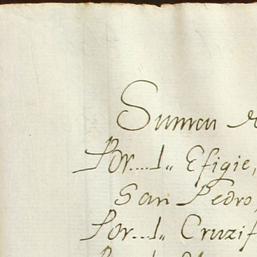 Sumen
Por....1,, Efigie,
San Pedro,
Por...1,, Cruzif